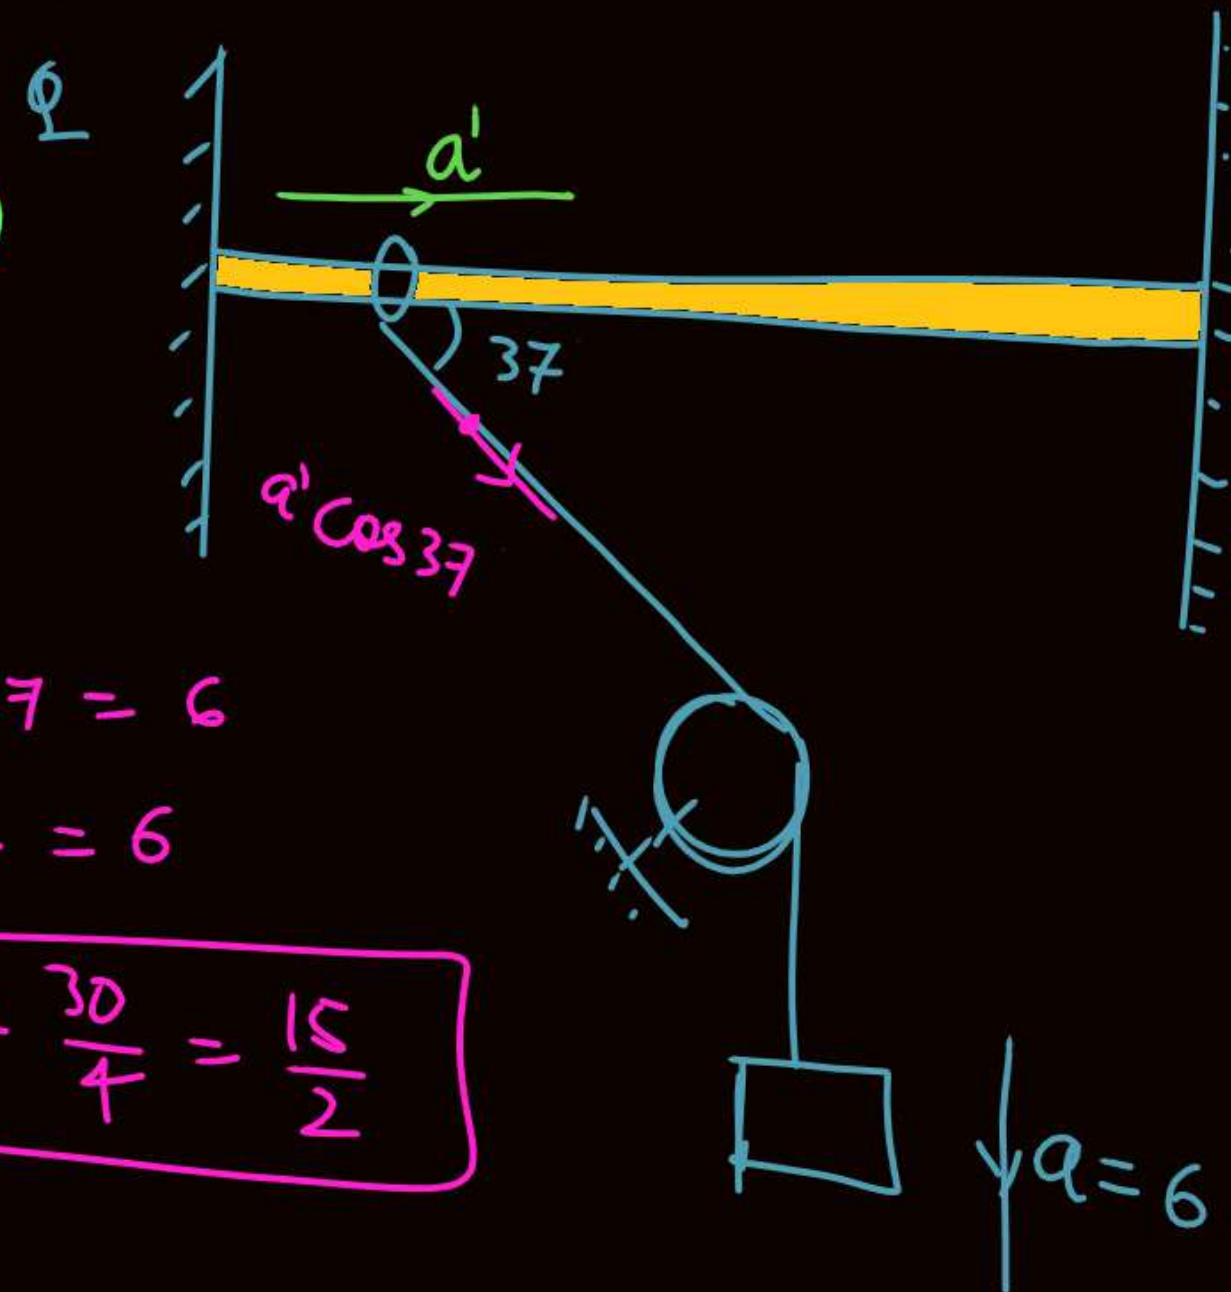 Q
a'
37
a' cos 37
7 = 6
= 6
30/4 = 15/2
a = 6